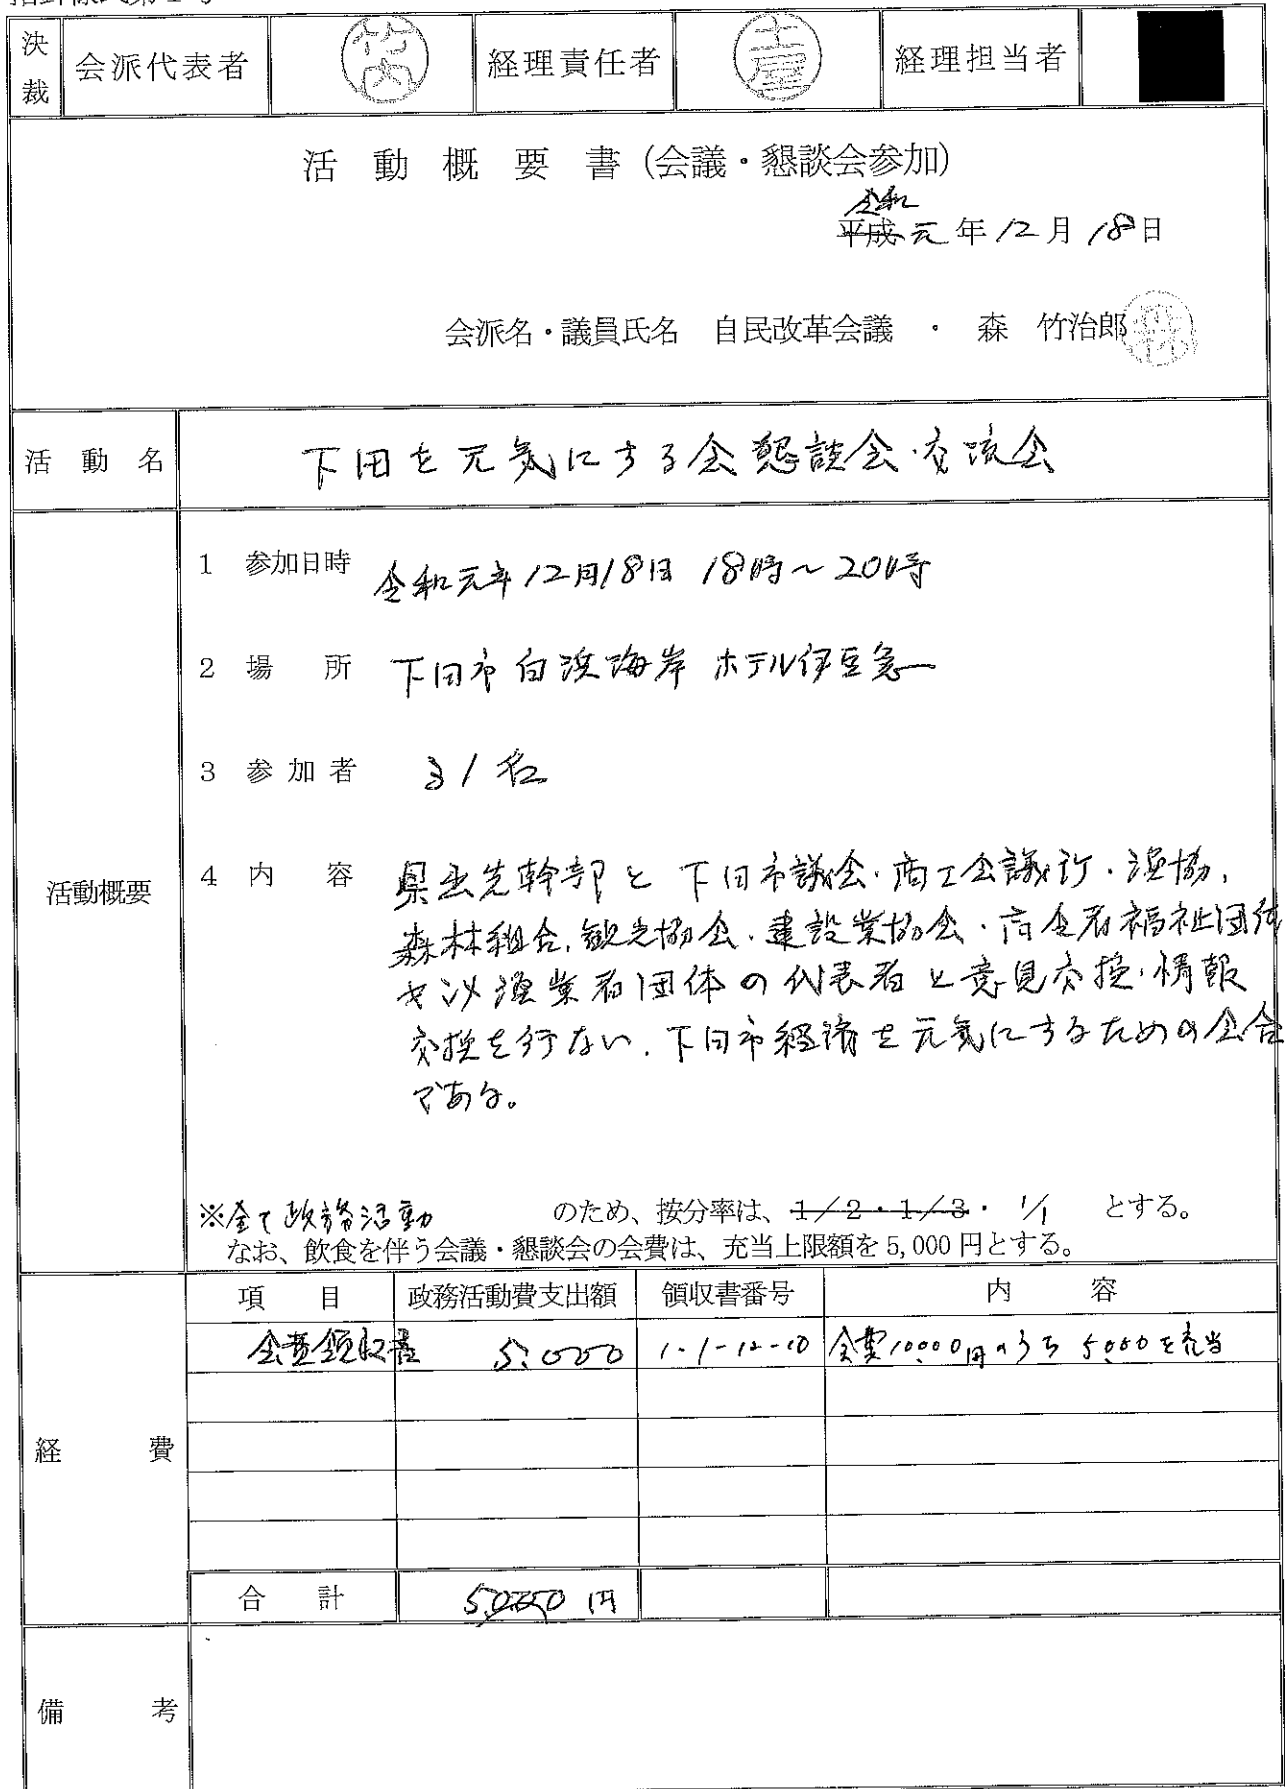 決裁 会派代表者 竹内 経理責任者 土屋 経理担当者
活動概要書(会議・懇談会参加)
令和
平成元年12月18日
会派名・議員氏名 自民改革会議 ・ 森 竹治郎 森
活動名 下田を元気にする会懇談会・交流会
活動概要
1 参加日時 令和元年12月18日 18時~20時
2 場所 下田市白浜海岸 ホテル伊豆急
3 参加者 31名
4 内容 県出先幹部と下田市議会・商工会議所・漁協、
森林組合、観光協会・建設業協会・高令者福祉団体
漁業者団体の代表者と意見交換・情報
交換を行ない、下田市経済を元気にするための会合
である。
※全て政務活動 のため、按分率は、1/2・1/3・ 1/1 とする。
なお、飲食を伴う会議・懇談会の会費は、充当上限額を5,000円とする。
経費
項目 政務活動費支出額 領収書番号 内容
会費領収書 5,000 1-1-12-10 会費10,000円のうち 5,000を充当
合計 5,000円
備考